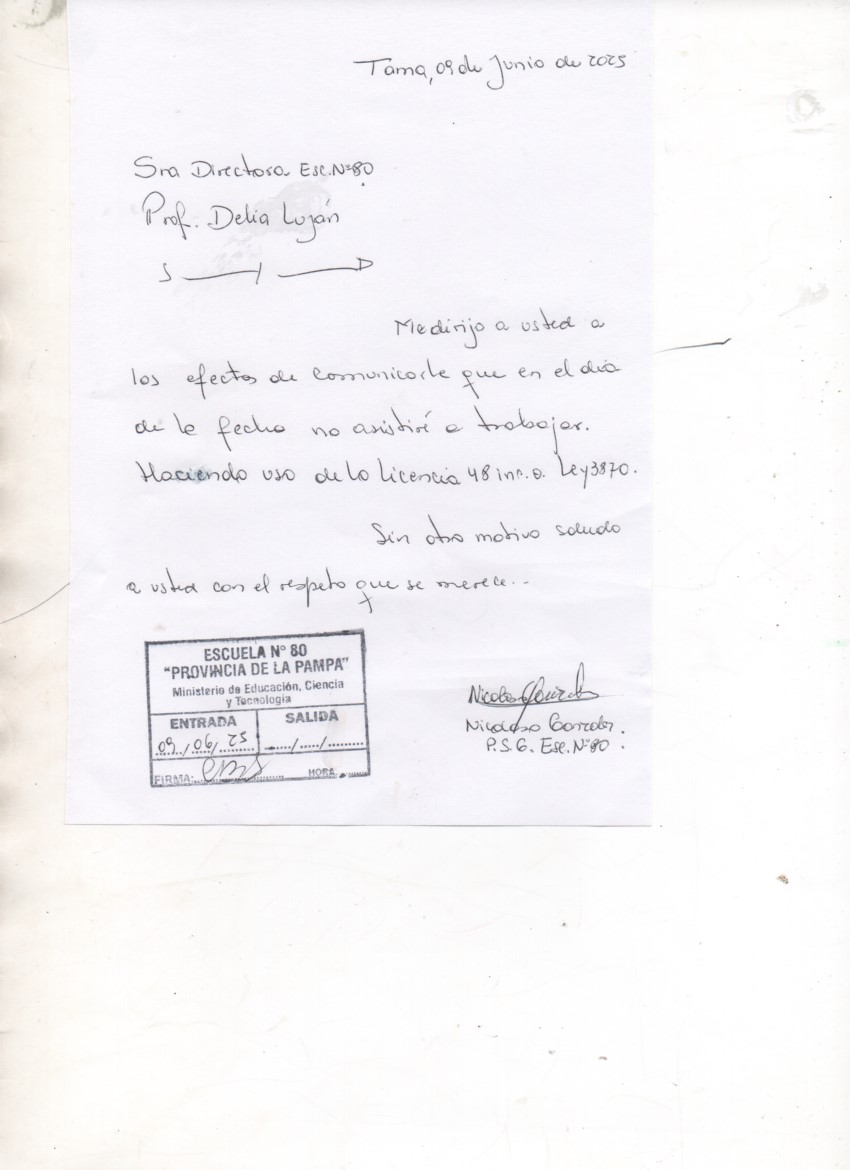 Tama, 09 de Junio de 2025
Sra Directora Esc. Nº 80
Prof. Delia Luján
S / D
Me dirijo a usted a
los efectos de comunicarle que en el día
de la fecha no asistiré a trabajar.
Haciendo uso de la licencia 48 inc. a. Ley 3870.
Sin otro motivo saludo
a usted con el respeto que se merece...
ESCUELA N° 80
"PROVINCIA DE LA PAMPA"
Ministerio de Educación, Ciencia
y Tecnología
ENTRADA SALIDA
09/06/25 ..../...../.........
FIRMA: HORA:
P.S.G. Esc. Nº 80.